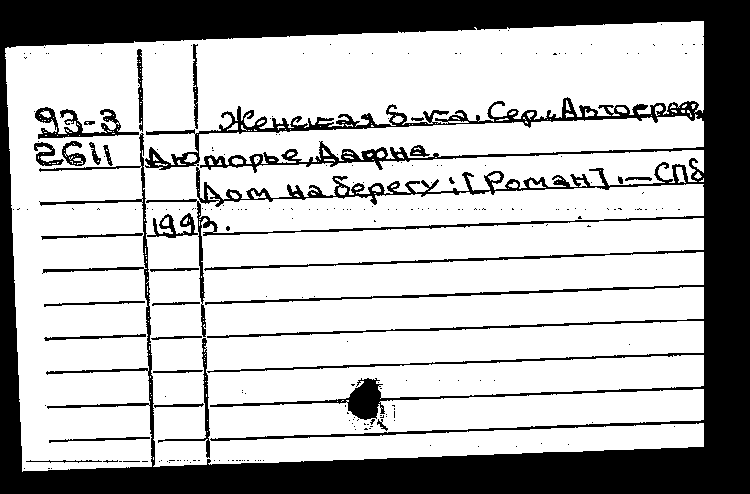 93-3 Женская б-ка. Сер. "Автограф"
2611 Дюморье, Дафна.
Дом на берегу: [Роман]. — СПб
1993.